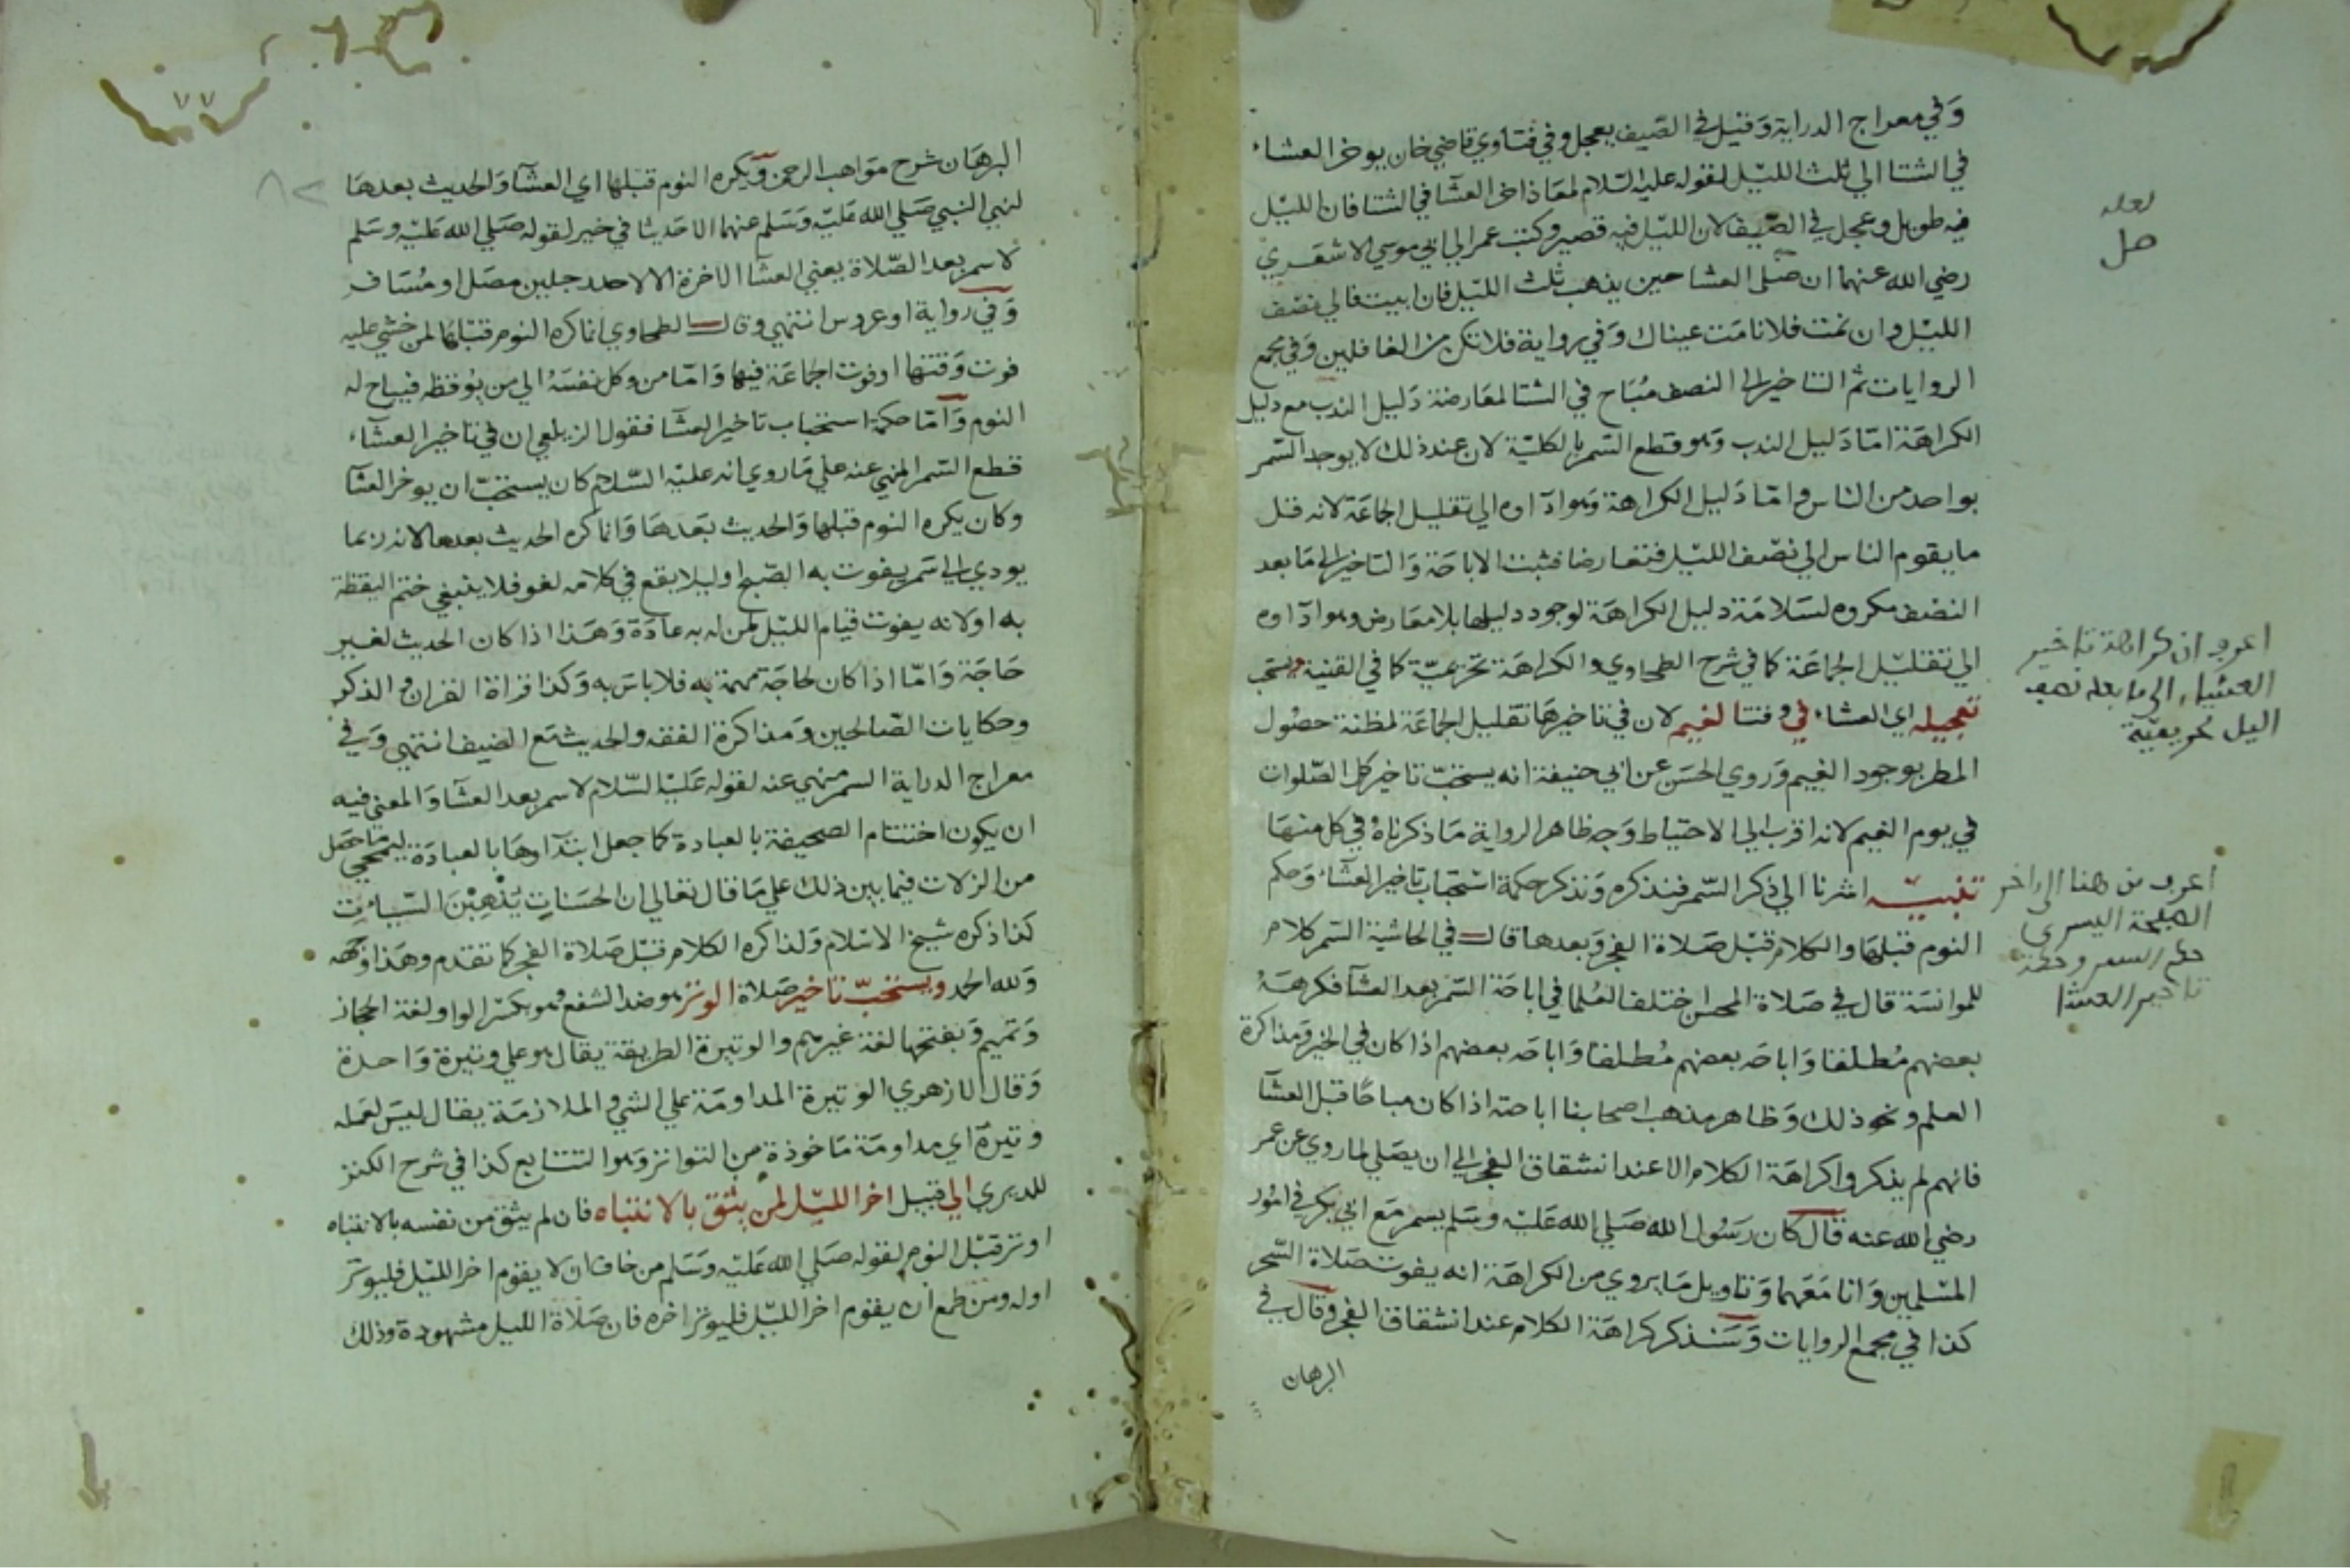 وفي معراج الدراية وقيل في الصيف يعجل وفي فتاوي قاضي خان يوخر العشاء
في الشتا الي ثلث الليل لقوله عليه السلام لمعاذ اخر العشا في الشتا فان الليل
فيه طويل وعجل في الصيف لان الليل فيه قصير وكتب عمر الي ابي موسي الاشعري
رضي الله عنهما ان صلى العشا حين يذهب ثلث الليل فان ابيت فالي نصف
الليل وان نمت فلا نامت عيناك وفي رواية فلا تكن من الغافلين وفي مجمع
الروايات ثم التاخير الى النصف مباح في الشتا لمعارضة دليل الندب مع دليل
الكراهة اما دليل الندب وهو قطع السمر بالكلية لان عند ذلك لا يوجد السمر
بواحد من الناس واما دليل الكراهة وهو اداوه الي تقليل الجماعة لانه قل
ما يقوم الناس الي نصف الليل فتعارضا فثبت الاباحة والتاخير الى ما بعد
النصف مكروه لسلامة دليل الكراهة لوجود دليلها بلا معارض وهو اداوه
الي تقليل الجماعة كما في شرح الطحاوي والكراهة تحريمية كما في القنية ويستحب
تعجيله اي العشاء في وقت الغيم لان في تاخيرها تقليل الجماعة لمظنة حصول
المطر بوجود الغيم وروي الحسن عن ابي حنيفة انه يستحب تاخير كل الصلوات
في يوم الغيم لانه اقرب الي الاحتياط وجه ظاهر الرواية ما ذكرناه في كل منها
تنبيه اشرنا الي ذكر السمر فنذكره ونذكر حكمة استحباب تاخير العشاء وحكم
النوم قبلها والكلام قبل صلاة الفجر وبعدها قال في الحاشية السمر كلام
للموانسة قال في صلاة المحسن اختلف العلما في اباحة السمر بعد العشا فكرهه
بعضهم مطلقا واباحه بعضهم مطلقا واباحه بعضهم اذا كان في الخير ومذاكرة
العلم ونحو ذلك وظاهر مذهب اصحابنا اباحته اذا كان مباحا قبل العشا
فانهم لم يذكروا كراهة الكلام الا عند انشقاق الفجر الي ان يصلي لما روي عن عمر
رضي الله عنه قال كان رسول الله صلي الله عليه وسلم يسمر مع ابي بكر في امور
المسلمين وانا معهما وتاويل ما يروي من الكراهة انه يفوت صلاة السحر
كذا في مجمع الروايات وسنذكر كراهة الكلام عند انشقاق الفجر وقال في
البرهان
لعله
صل
اعرف ان كراهة تاخير
العشاء الى ما بعد نصف
اليل تحريمية
اعرف من هنا الى اخر
الصفحة اليسرى
حكم السمر وحكمة
تاخير العشا
٧٧
البرهان شرح مواهب الرحمن ويكره النوم قبلها اي العشا والحديث بعدها
لنهي النبي صلي الله عليه وسلم عنهما الا حديثا في خير لقوله صلي الله عليه وسلم
لا سمر بعد الصلاة يعني العشا الاخرة الا لاحد رجلين مصل او مسافر
وفي رواية او عروس انتهي وقال الطحاوي انما كره النوم قبلها لمن خشي عليه
فوت وقتها او فوت الجماعة فيها واما من وكل نفسه الي من يوقظه فيباح له
النوم واما حكمة استحباب تاخير العشا فقول الزيلعي ان في تاخير العشاء
قطع السمر المنهي عنه علي ما روي انه عليه السلام كان يستحب ان يوخر العشا
وكان يكره النوم قبلها والحديث بعدها وانما كره الحديث بعدها لانه ربما
يودي الى سمر يفوت به الصبح او ليلا يقع في كلامه لغو فلا ينبغي ختم اليقظة
به او لانه يفوت قيام الليل لمن له به عادة وهذا اذا كان الحديث لغير
حاجة واما اذا كان لحاجة مهمة به فلا باس به وكذا قراة القران والذكر
وحكايات الصالحين ومذاكرة الفقه والحديث مع الضيف انتهي وفي
معراج الدراية السمر منهي عنه لقوله عليه السلام لا سمر بعد العشا والمعنى فيه
ان يكون اختتام الصحيفة بالعبادة كما جعل ابتداوها بالعبادة ليمحي ما حصل
من الزلات فيما بين ذلك علي ما قال تعالي ان الحسنات يذهبن السيئات
كذا ذكره شيخ الاسلام ولذا كره الكلام قبل صلاة الفجر كما تقدم وهذا وجهه
ولله الحمد ويستحب تاخير صلاة الوتر هو ضد الشفع وهو بكسر الواو لغة الحجاز
وتميم وبفتحها لغة غيرهم والوتيرة الطريقة يقال هو علي وتيرة واحدة
وقال الازهري الوتيرة المداومة علي الشي والملازمة يقال ليس لعمله
وتيرة اي مداومة ماخوذة من التواتر وهو التتابع كذا في شرح الكنز
للديري الي قبيل اخر الليل لمن يثق بالانتباه فان لم يثق من نفسه بالانتباه
اوتر قبل النوم لقوله صلي الله عليه وسلم من خاف ان لا يقوم اخر الليل فليوتر
اوله ومن طمع ان يقوم اخر الليل فليوتر اخره فان صلاة الليل مشهودة وذلك